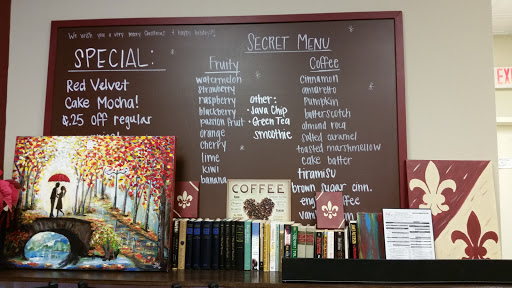 We wish you a very merry Christmas & happy holidays!
SPECIAL:
Red Velvet
Cake Mocha!
$.25 off regular
SECRET MENU
Fruity
watermelon
strawberry
raspberry
blackberry
passion fruit
orange
cherry
lime
kiwi
banana
other:
• Java Chip
• Green Tea
smoothie
Coffee
cinnamon
amaretto
pumpkin
butterscotch
almond roca
salted caramel
toasted marshmellow
cake batter
tiramisu
brown sugar cinn.
COFFEE
EXI